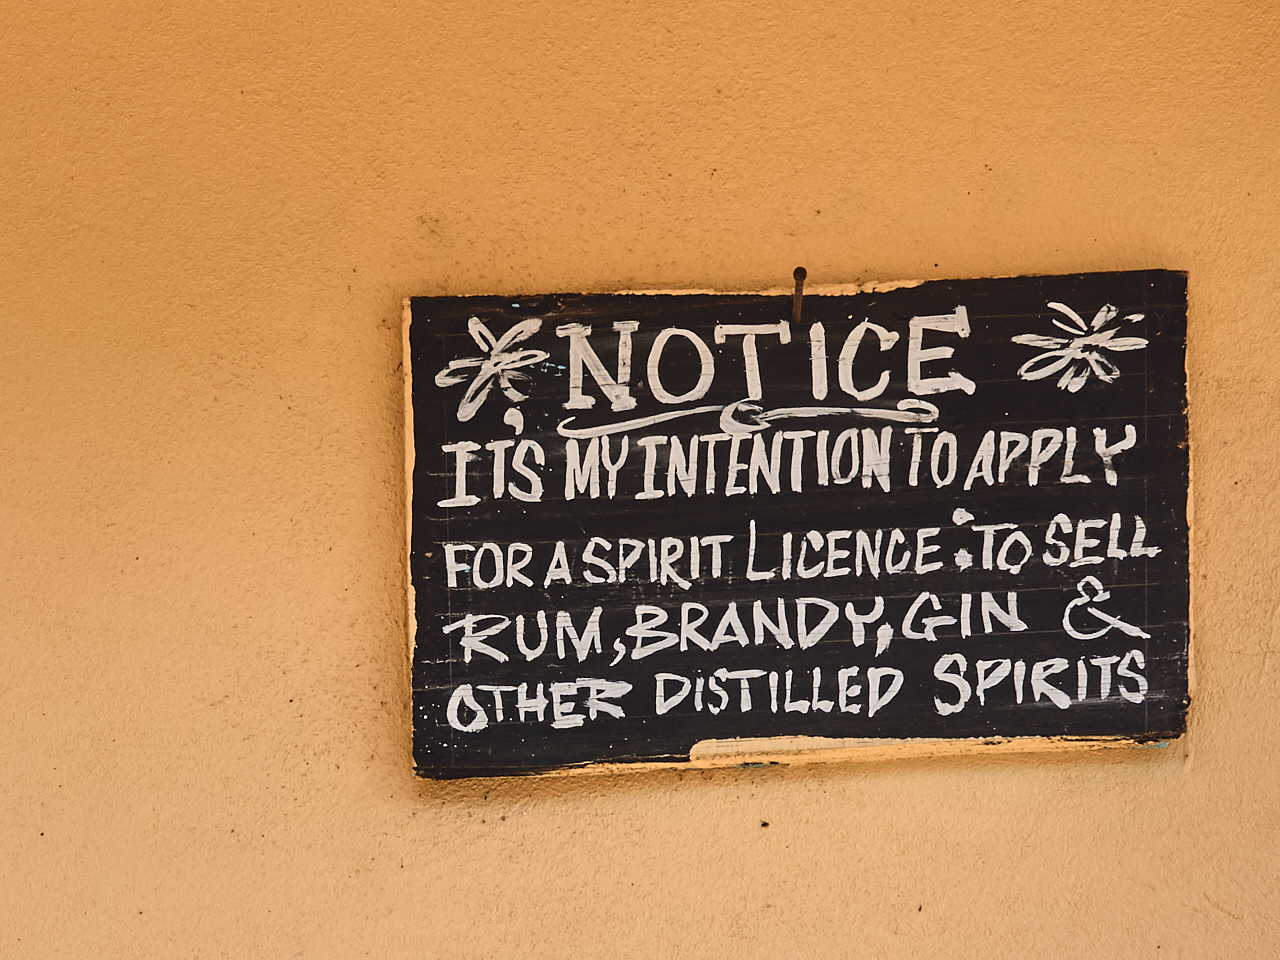 NOTICE
IT'S MY INTENTION TO APPLY
FOR A SPIRIT LICENCE: TO SELL
RUM, BRANDY, GIN &
OTHER DISTILLED SPIRITS